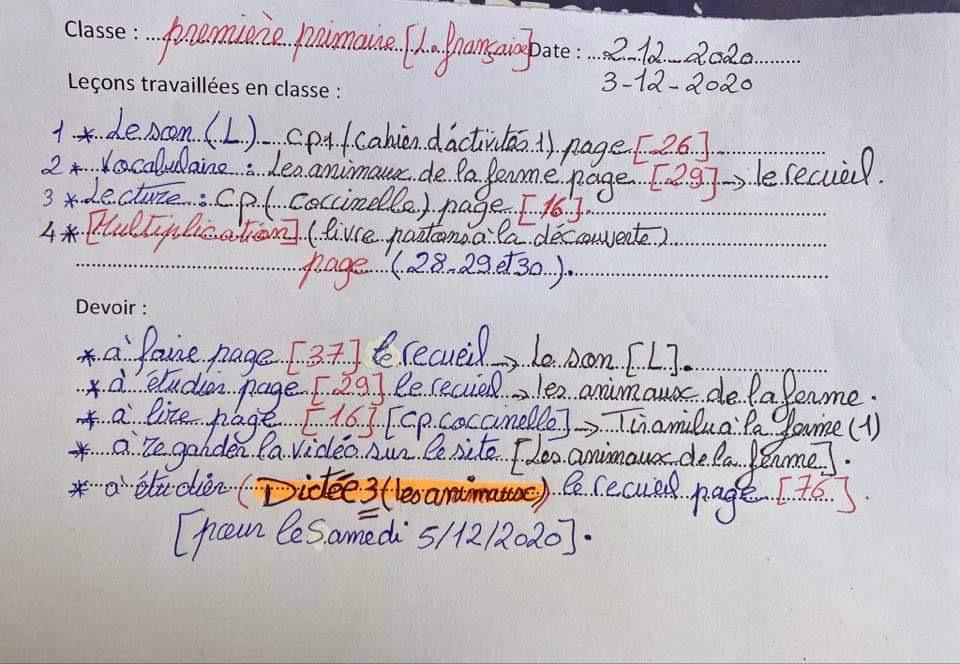 Classe : première primaire [L. française] Date : 2-12-2020
3-12-2020
Leçons travaillées en classe :
1 * Le son (L) cp1 (Cahier d'activités 1) page [26]
2 * Vocabulaire : Les animaux de la ferme page [29] → le recueil.
3 * Lecture : cp (coccinelle) page [16].
4 * [Multiplication] (livre partons à la découverte)
page (28-29 et 30).
Devoir :
* à faire page [37] le recueil → Le son [L].
* à étudier page [29] le recueil → les animaux de la ferme.
* à lire page [16] [cp coccinelle] → à la ferme (1)
* à regarder la vidéo sur le site [Les animaux de la ferme].
* à étudier (Dictée 3 (les animaux)) le recueil page [76].
[pour le Samedi 5/12/2020].